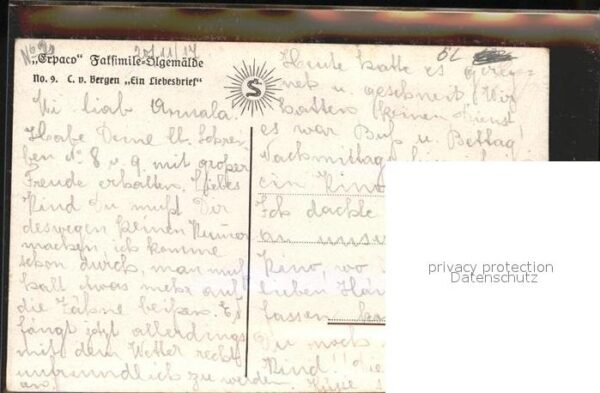 No 20
20/11/17
52
„Erpaco" Faksimile-Ölgemälde
No. 9. C. v. Bergen „Ein Liebesbrief"
S
Mi liab Annala.
Habe Deine lb. Schrei-
ben No 8 u 9. mit großer
Freude erhalten. Liebes
Kind Du mußt Dir
deswegen keinen Kumer
machen ich komme
schon durch, man muß
halt etwas mehr auf
die Zähne beißen. Es
fängt jetzt allerdings
mit dem Wetter recht
unfreundlich zu werden
an.
Heute hatte es gereg=
net u. geschneit. Wir
hatten keinen Dienst
es war Buß u. Bettag!
Nachmittag
ein Kino
Ich dachte
an unser
Kino, wo
lieben Hän
fassen
Du noch
Kind!! Die
privacy protection
Datenschutz